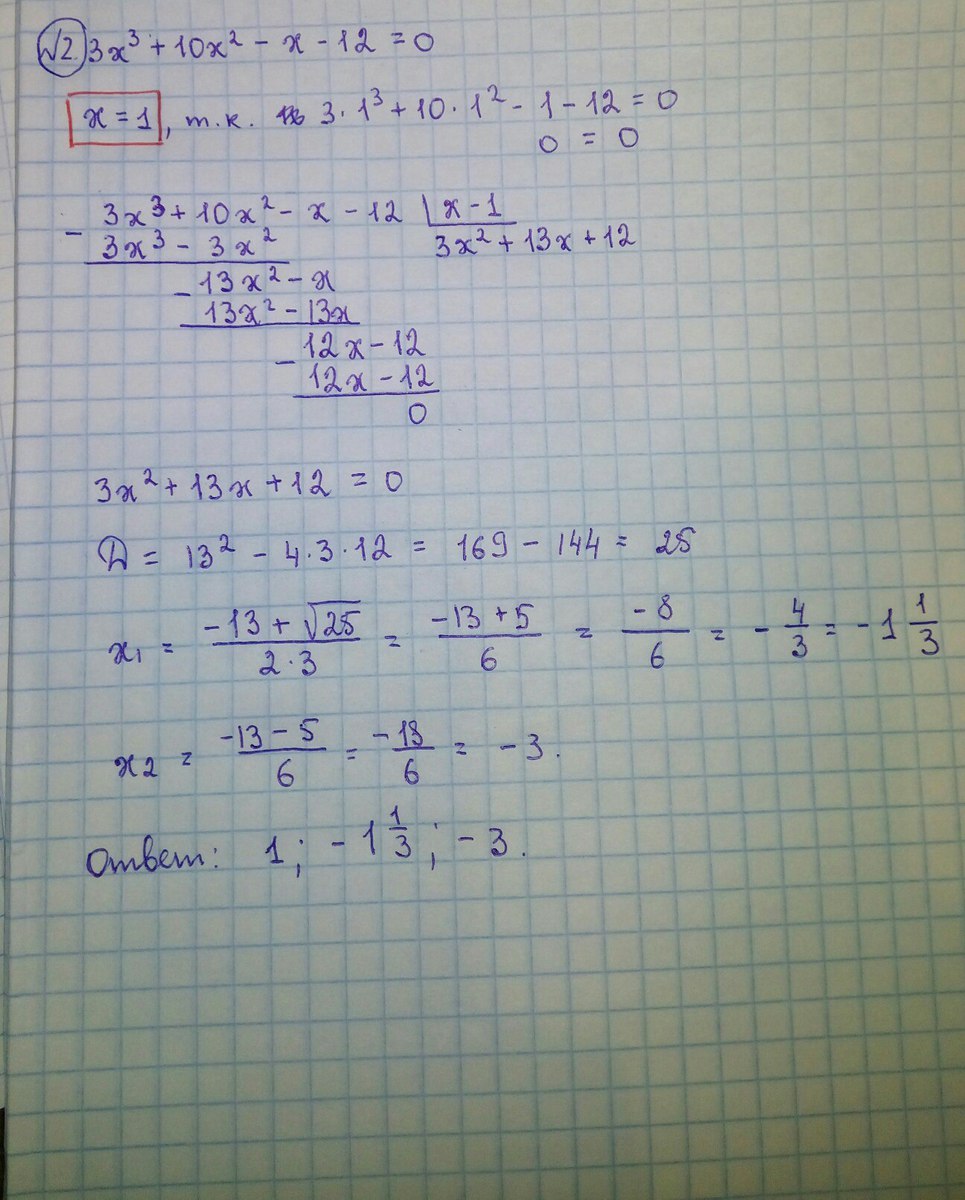 √2. 3x³ + 10x² - x - 12 = 0
x = 1, т.к. 3·1³ + 10·1² - 1 - 12 = 0
0 = 0
- 3x³ + 10x² - x - 12 | x - 1
3x³ - 3x² 3x² + 13x + 12
- 13x² - x
13x² - 13x
- 12x - 12
12x - 12
0
3x² + 13x + 12 = 0
D = 13² - 4·3·12 = 169 - 144 = 25
x₁ = (-13 + √25)/(2·3) = (-13 + 5)/6 = -8/6 = - 4/3 = - 1 1/3
x₂ = (-13 - 5)/6 = -18/6 = - 3.
Ответ: 1; - 1 1/3; - 3.